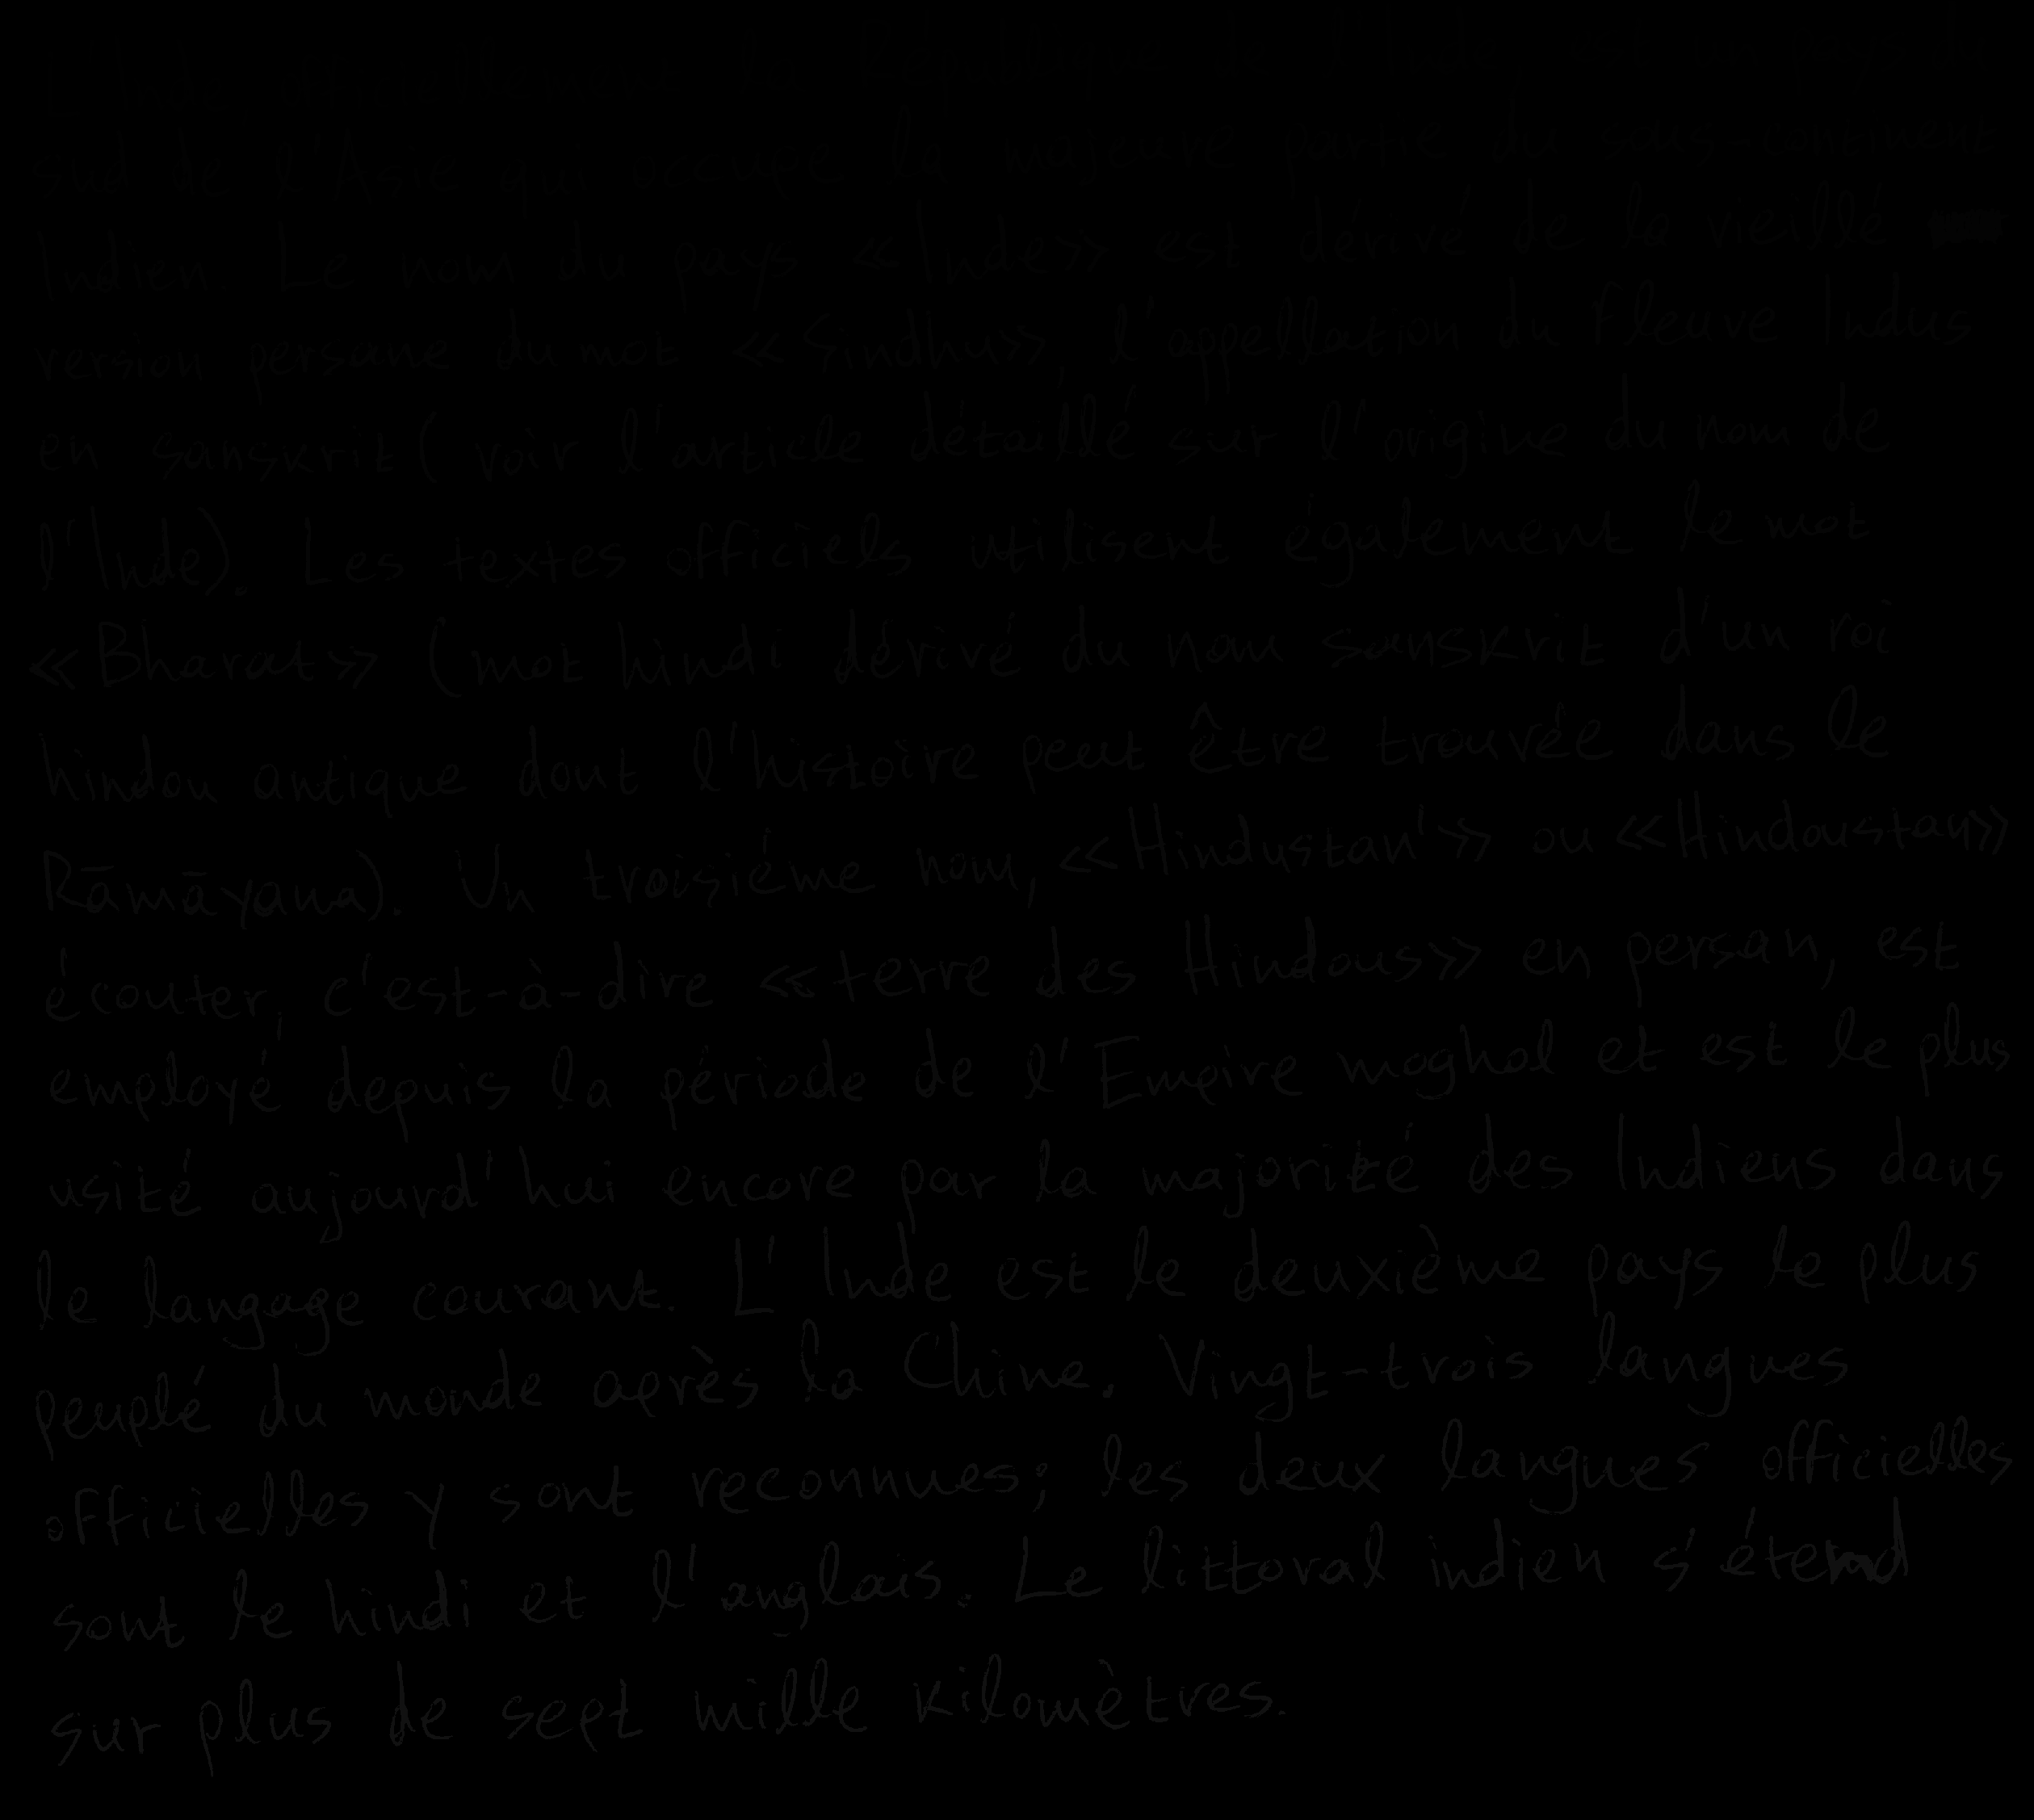 L'Inde, officiellement la République de l'Inde, est un pays du
sud de l'Asie qui occupe la majeure partie du sous-continent
Indien Le nom du pays «Inde» est dérivé de la vieillé
version persane du mot «Sindhu», l'appellation du fleuve Indus
en sanskrit ( voir l'article détaillé sur l'origine du nom de
l'Inde). Les textes officiels utilisent également le mot
«Bharat» (mot hindi dérivé du nom sanskrit d'un roi
hindou antique dont l'histoire peut être trouvée dans le
Rāmāyana). Un troisiéme nom, «Hindustan'» ou «Hindoustan»
écouter, c'est-à-dire «terre des Hindous» en persan, est
employé depuis la période de l'Empire moghol et est le plus
usité aujourd'hui encore par la majorité des Indiens dans
le langage courant. L'Inde est le deuxième pays le plus
peuplé du monde après la Chine. Vingt-trois langues
officielles y sont reconnues; les deux langues officielles
sont le hindi et l'anglais. Le littoral indien s'étend
sur plus de sept mille kilomètres.